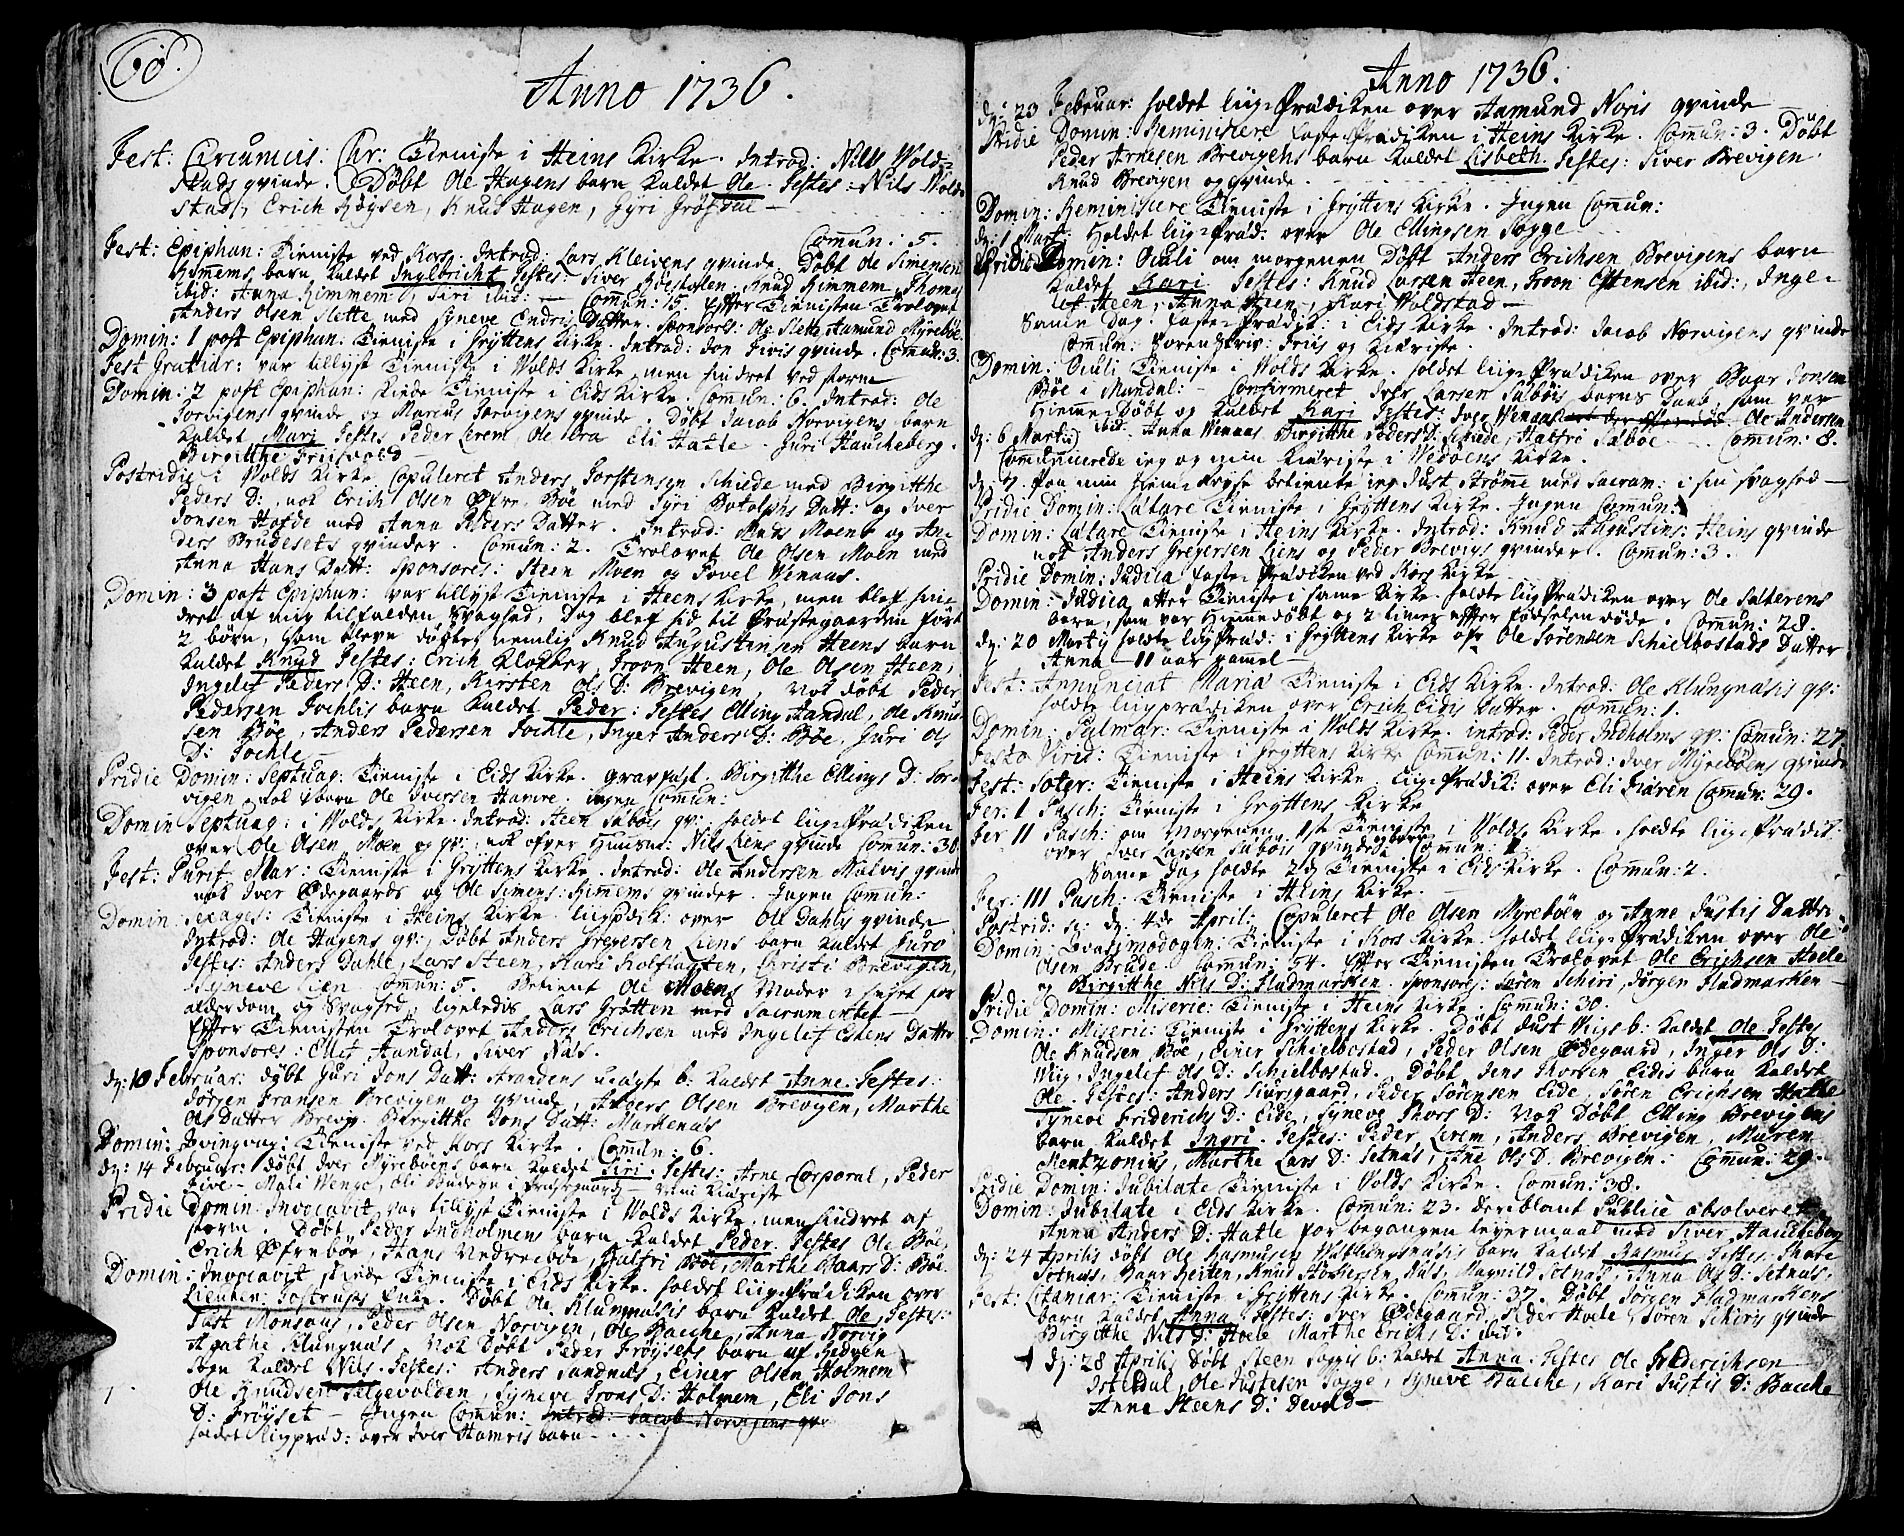 60.
Anno 1736.
Fest: Circumcis: Chr: Tieniste i Heins Kirke. Introd: Nils Wold-
stads qvinde. Døbt Ole Hagens barn kaldet Ole. Testes: Nils Wold-
stad, Erich Røysen, Knud Hagen, Gyri Grøfdal —
Comun: 5.
Fest: Epiphan: Tieniste ved Kors. Introd: Lars Kleivens qvinde. Døbt Ole Simensen
Rimems barn kaldet Ingebricht Testes: Siver Knud Rimmem, Thomes
ibid: Anna Rimmem, Siri ibid: — Comun: 15. Efter Tienisten Trolovet
Anders Olsen Slette med Syneve Endris Datter. Sponsores: Ole Slette, Aamund Myrebøe.
Domin: 1 post Epiphan: Tieniste i Gryttens Kirke. Introd: Jon Fivis qvinde. Comun: 3.
Fest Gratiar: var tillyst Tieniste i Wolds Kirke, men hindret ved storm
Domin: 2 post Epiphan: Tieniste i Eids Kirke. Comun: 6. Introd: Ole
Torvigens qvinde og Marcus Torvigens qvinde. Døbt Jacob Norvigens barn
kaldet Mari Testes Peder Lerem, Ole Eli Hatle. Guri Haucheberg.
Birgitthe Friisvold —
Postridie i Wolds Kirke Copuleret Anders Torstensen Schiede med Birgitthe
Peders D: nok Erich Olsen Øfre Bøe med Syri Botolphs Datt: og Iver
Jonsen Hofde med Anna Peders Datter. Introd: Mads Moens og An-
ders Brudesets qvinder. Comun: 2. Trolovet Ole Olsen Moen med
Anna Hans Datt: Sponsores: Steen Moen og Povel Wenaas.
Domin: 3 post Epiphan: var tillyst Tieniste i Heens Kirke, men blef hin-
dret af mig tilfalden Svaghed, Dog blef hid til Præstegaarden ført
2 børn, som bleve døbte, nemlig Knud Augustinsen Heens barn
kaldet Knud Testes: Erich Klokker, Troon Heen, Ole Olsen Heen,
Ingelef Peders D: Heen, Kirsten Ols D: Brevigen, Nok døbt Peder
Pedersen Sochlis barn kaldet Peder: Testes Elling Aandal, Ole Knud-
sen Bøe, Anders Pedersen Sochle, Inger Anders D: Bøe, Guri Ols
D: Sochle —
Pridie Domin: Septuag: Tieniste i Eids Kirke. Gravfæst. Birgitthe Ellings D: Tor-
vigen nok barn Ole Iversen Hamre. ingen Comun:
Domin Septuag: i Wolds Kirke. Introd: Steen Sæbøis qv: holdet liig-Prædiken
over Ole Olsen Moen og qv: nok ofver Nils Liens qvinde Comun: 30
Fest: Purif. Mar: Tieniste i Gryttens Kirke. Introd: Ole Andersen Malvis qvinde
nok Iver Ødegaards og Ole Simens: Rimems qvinder. Ingen Comun:
Domin: Sexages: Tieniste i Heins Kirke. liigPrdk: over Ole Dahlis qvinde
Introd: Ole Hagens qv: Døbt Anders Gregersen Liens barn kaldet Guro
Testes: Anders Dahle, Lars Steen, Kari Kolflogten, Christi Brevigen,
Syneve Lien Comun: 5. Betient Ole Moens Moder i huset for
alderdom og Svaghed, ligeledis Lars Grøtten med Sacramentet —
Efter Tienisten Trolovet Anders Erichsen med Ingelef Estens Datter
Sponsores: Ellef Aandal, Siver Næs.
dj: 10 Februar: døbt Guri Jons Datt: Strandens uægte b: kaldet Anne. Testes:
Jørgen Fransen Brevigen og qvinde, Anders Olsen Brevigen, Marthe
Ols Datter Brevig, Birgitthe Jons Datt: Markenæs
Domin: Qvinqvag: Tieniste ved Kors Kirke. Comun: 6.
dj: 14 Februar: døbt Iver Myrebøens barn kaldet Siri. Testes: Arne Corporal, Peder
Five — Mali Wenge, Eli Buderen i Præstegaard
Pridie Domin: Invocavit var tillyst Tieniste i Wolds Kirke, men hindret af
storm. Døbt Peder Indholmens barn kaldet Peder. Testes Ole Bøe,
Erich Øfrebøe, Hans Nedrebøe, Halfri Bøe, Marthe Baars D: Bøe.
Domin: Invocavit Tieniste i Eids Kirke. holdet liig-Prædiken over
Lieuten: Tostrups Enke. Døbt Ole Klungnæsis barn kaldet Ole, Testes:
Just Monsaas, Peder Olsen Norvigen, Ole Bacche, Anna Norvig
Agathe Klungnæs. Nok døbt Peder Frøysets barn af Redven
Sogn kaldet Nils. Testes: Anders Sandnæs, Einer Olsen Holmem
Ole Knudsen Helgevolden, Syneve Trons D: Holmem, Eli Jons
D: Frøyset — Ingen Comun: Introd: Jacob Norvigens qv:
holdet ligpræd: over Iver Hamris barn —
Anno 1736.
dj: 23 Februar: holdet liig-Prædiken over Aamund Noris qvinde
Pridie Domin: Reminiscere faste-Prædiken i Heins Kirke. Comun: 3. Døbt
Peder Arnesen Brevigens barn kaldet Lisbeth. Testes: Siver Brevigen.
Knud Brevigen og qvinde.
Domin: Reminiscere Tieniste i Gryttens Kirke. Ingen Comun:
dj: 1 Mart: Holdet liig-Præd: over Ole Ellingsen Sogge
Pridie Domin: Oculi om morgenen Døbt Anders Erichsen Brevigens barn
kaldet Kari Testes: Knud Larsen Heen, Troon Estensen ibid:, Inge-
lef Heen, Anna Heen, Kari Woldstad —
Same Dag faste-Prædik: i Eids Kirke. Introd: Jacob Norvigens qvinde
Comun: Soren Skriv: Friis og Kiæriste.
Domin: Oculi Tieniste i Wolds Kirke. holdet liig-Prædiken over Baar Jonsen
Bøe i Mandal: Confirmeret Iver Larsen Sæbøis barns daab, som var
Hiemme-Døbt og kaldet Kari Testes: Iver Wenaas Ole Andersen
ibid. Anna Wenaas Birgitthe Peders D: Schiede, Halfri Sæbøe — Comun: 8.
dj: 6 Martij
Comunicerede jeg og min Kiæriste i Wedøens Kirke.
dj: 7. Paa min Hiem-Reyse betiente jeg Just Strøme med Sacram: i sin svaghed —
Pridie Domin: Lætare Tieniste i Gryttens Kirke. Ingen Comun:
Domin: Lætare Tieniste i Heins Kirke. Introd: Knud Augustins: Heins qvinde
nok Anders Gregersen Liens og Peder Brevigs qvinder. Comun: 3.
Pridie Domin: Judica faste-Prædiken ved Kors Kirke
Domin: Judica atter Tieniste i same Kirke. holdte liig Prædiken over Ole Salterens
barn, som var Hiemmedøbt og 2 timer efter fødselen døde. Comun: 28.
dj: 20 Martij holdte liigPræd: i Gryttens Kirke ofr Ole Sorensen Schielbostads Datter
Anna — 11 aar gammel —
Fest: Annunciat Mariæ Tieniste i Eids Kirke. Introd: Ole Klungnæsis qv:
holdte liigprædiken over Erich Eidis Datter. Comun: 1.
Domin: Palmar: Tieniste i Wolds Kirke. introd: Peder Indholms qv: Comun: 27
Festo Virid: Tieniste i Gryttens Kirke Comun: 11. Introd: Iver Myrebøens qvinde
Fest: Soter: Tieniste i Heins Kirke. liig-Prædik: over Eli Fiøren Comun: 29.
Fer: 1 Pasch: Tieniste i Gryttens Kirke
Fer II Pasch: om Morgenen 1ste Tieniste i Wolds Kirke. holdte liig-Prædik:
over Iver Larsen Sæbøis qvinde og barn Comun: 1
Same Dag holdte 2den Tieniste i Eids Kirke. Comun: 2.
Fer: III Pasch: Tieniste i Heins Kirke.
Postrid: dj: 4de April: Copuleret Ole Olsen Myrebøen og Anne Justis Datter.
Domin: Qvasimodogen: Tieniste i Kors Kirke. holdet liig-Prædiken over Ole
Olsen Brude. Comun: 54. Efter Tienisten Trolovet Ole Erichsen Hoele
og Birgitthe Nils D: Fladmarken. Sponsores: Søren Schiri, Jørgen Fladmarken —
Pridie Domin: Miseric: Tieniste i Heins Kirke. Comun: 30.
Domin: Miseric: Tieniste i Gryttens Kirke. Døbt Just Wigs b: kaldet Ole Testes
Ole Knudsen Bøe, Einer Schielbostad, Peder Olsen Ødegaard, Inger Ols D:
Wiig, Ingelef Ols D: Schielbostad. Døbt Jens Thorsen Eidis barn kaldet
Ole. Testes: Anders Siursgaard, Peder Sørensen Eide, Søren Erichsen Hatle
Syneve Friderichs D: Eide, Syneve Thors D: Nok Døbt Elling Brevigens
barn kaldet Ingri. Testes: Peder Lerem, Anders Brevigen, Maren
Mentzonius, Marthe Lars D: Setnæs, Ane Ols D: Brevigen: Comun: 29.
Pridie Domin: Jubilate Tieniste i Wolds Kirke. Comun: 38.
Domin: Jubilate i Eids Kirke. Comun: 23. deriblant Publice absolveret
Anna Anders D: Hatle for begangen leyermaal med Siver Haucheberg
dj: 24 Aprilis døbt Ole Rasmusen Watlungnæsis barn kaldet Rasmus Testes Thore
Setnæs, Baar Reiten, Knud Størkersen Næs, Magnild Setnæs, Anna Ols D: Setnæs,
Fest: Litaniar: Tieniste i Gryttens Kirke. Comun: 37. Døbt Jørgen Fladmarkens
barn kaldet Anna Testes: Iver Ødegaard, Peder Hoele, Søren Schiris qvinde
Birgitthe Nils D: Hoele Marthe Erichs D: ibid:
dj: 28 Aprilis Døbt Steen Soggis b: kaldet Anna. Testes Ole Friderichsen
Isterdal, Ole Justesen Sogge, Syneve Bacche, Kari Justis D: Bacche
Anna Steens D: Devold —